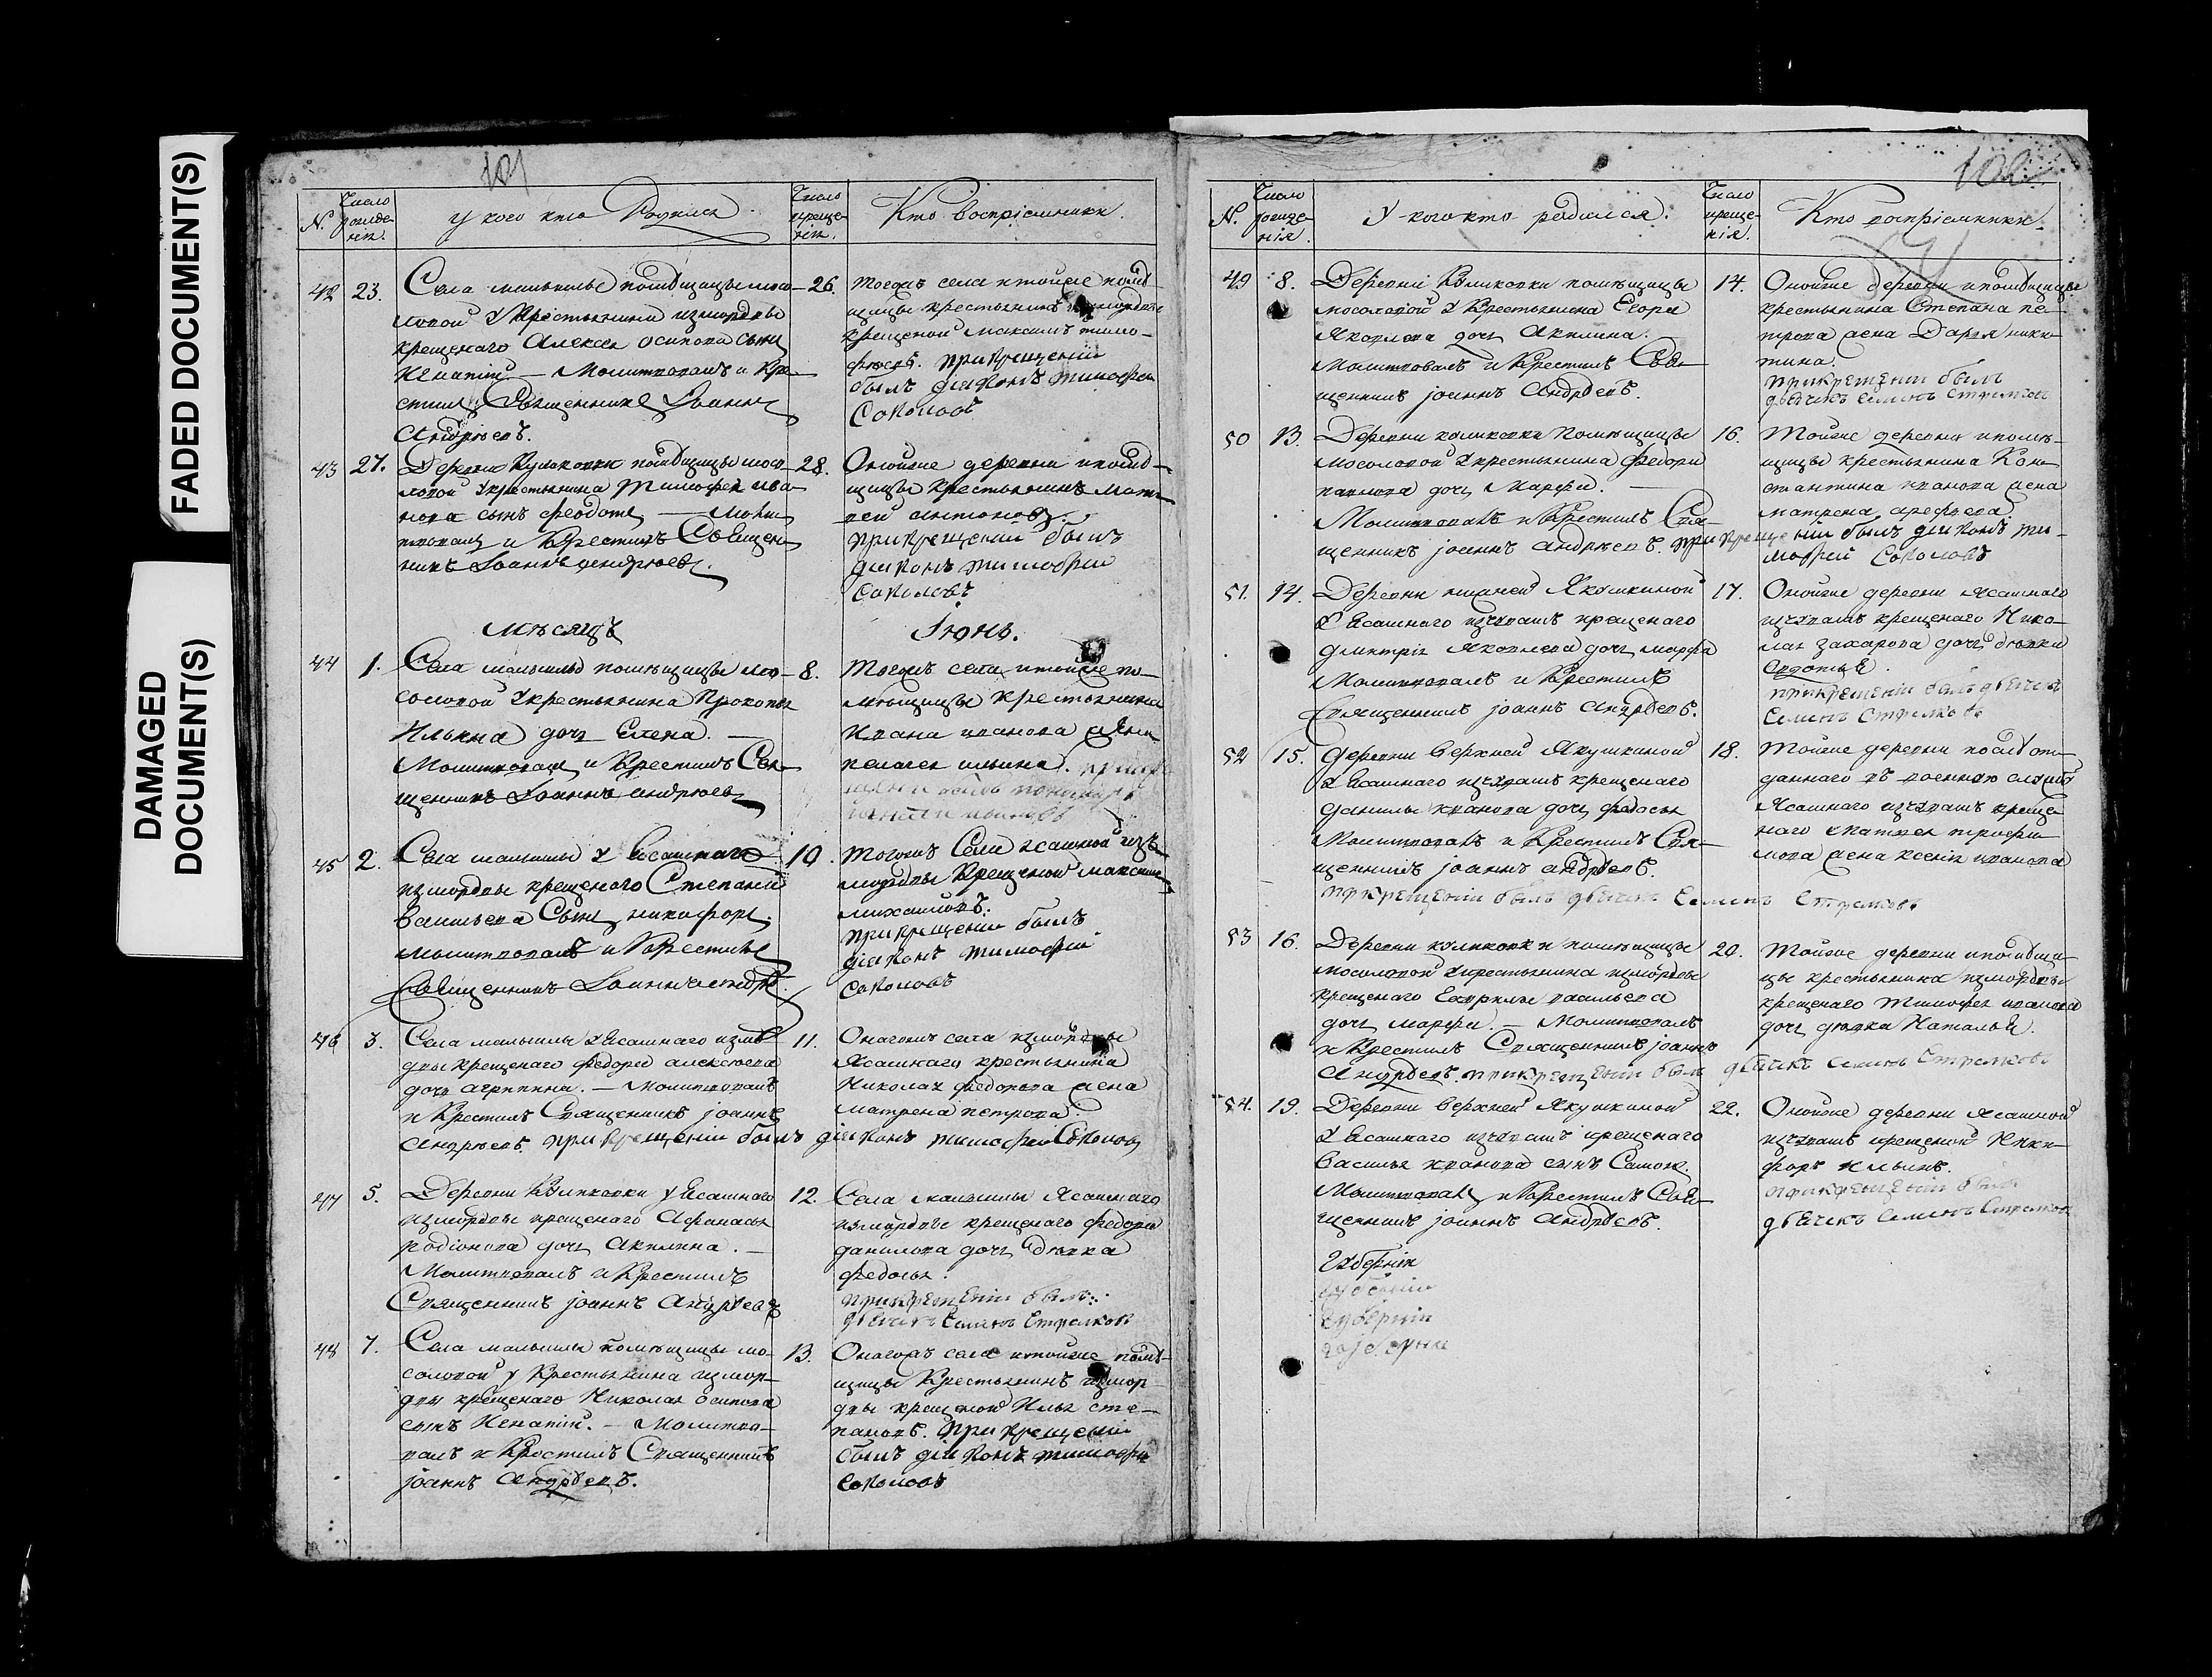 FADED DOCUMENT(S)
DAMAGED
DOCUMENT(S)
101
N.
Число рожденія.
У кого кто Родился.
Число крещенія.
Кто воспріемники.
42 23. Села мальцылы помѣщицы Мосо-
ловой у Крестьянина измордвы
крещенаго Алексея осипова сынъ
Игнатій — Молитвовалъ и Кре-
стилъ Священникъ Іоаннъ
Андрѣевъ.
26. тогожъ села итойже помѣ-
щицы крестьянинъ измордвы
крещеной максимъ тимо-
фѣевъ. прикрещеніи
былъ діяконъ тимофеи
Соколовъ
43 27. Деревни Куликовки помѣщицы мосо-
ловой укрестьянина Тимофея ива-
нова сынъ феодотъ — Моли
твовалъ и Крестилъ Священ
никъ Іоаннъ андрѣевъ.
28. Онойже деревни ипомѣ-
щицы крестьянинъ мат-
вей антоновъ.
прикрещеніи былъ
діяконъ тимофеи
Соколовъ
Мѣсяцъ Іюнь.
44 1. Села помѣщицы Мо-
соловой укрестьянина Прокопья
Ильина дочь Елена. —
Молитвовалъ и Крестилъ Свя-
щенникъ Іоаннъ андрѣевъ
8. тогожъ села итойже по-
мѣщицы крестьянина
Ивана иванова жена
пелагея ильина.
45 2. Села у Ясашнаго
измордвы крещенаго Степана
Васильева Сынъ никифоръ.
молитвовалъ и Крестилъ
Священникъ Іоаннъ андрѣ.
10. тогожъ Села ясашной изъ
мордвы Крещеной максимъ
михайловъ.
прикрещеніи былъ
діяконъ тимофей
Соколовъ
46 3. Села уясашнаго измор
двы крещенаго федора алексѣева
дочь агрипина. — молитвовалъ
и Крестилъ Священникъ іоаннъ
андрѣевъ. прикрещеніи былъ діяконъ тимофей Соколовъ
11. Онагожъ села измордвы
Ясашнаго крестьянина
Николая федорова жена
матрена петрова.
47 5. Деревни Куликовки у Ясашнаго
измордвы крещенаго Афанасья
родіонова дочь Акилина. —
Молитвовалъ и Крестилъ
Священникъ іоаннъ Андрѣевъ
12. Села Ясашнаго
измордвы крещенаго федора
данилова дочь дѣвка
федосья.
прикрещеніи былъ
дьячекъ Семенъ Стрелковъ
48 7. Села помѣщицы мо-
соловой у Крестьянина измор-
двы крещенаго Николая осипова
сынъ Игнатій. — Молитво-
валъ и Крестилъ Священникъ
іоаннъ Андрѣевъ.
13. Онагожъ села итойже помѣ-
щицы Крестьянинъ измор-
двы крещеной Илья сте-
пановъ. прикрещеніи
былъ діяконъ тимофѣи
Соколовъ
102
N.
Число рожденія.
У кого кто родился.
Число крещенія.
Кто воспріемники.
49 8. Деревни Куликовки помѣщицы
мосоловой у Крестьянина Егора
Яковлева дочь Акилина.
Молитвовалъ и Крестилъ Свя-
щенникъ іоаннъ Андрѣевъ.
14. Онойже деревни ипомѣщицы
крестьянина Степана пе-
трова жена Дарья ники-
тина.
прикрещеніи былъ
дьячекъ Семенъ Стрелковъ
50 13. Деревни куликовки Помѣщицы
Мосоловой укрестьянина федора
павлова дочь Марфа. —
Молитвовалъ и Крестилъ Свя-
щенникъ іоаннъ андрѣевъ. прикрещеніи былъ діяконъ ти-
мофей Соколовъ
16. Тойже деревни ипомѣ-
щицы крестьянина Кон-
стантина иванова жена
матрена арефьева
51. 14. Деревни нижней Якушкиной
у Ясашнаго изчувашъ крещенаго
Дмитрія Яковлева дочь марфа
Молитвовалъ и Крестилъ
Священникъ іоаннъ Андрѣевъ.
17. Онойже деревни Ясашнаго
изчувашъ крещенаго Нико-
лая захарова дочь дѣвка
Авдотья.
прикрещеніи былъ дьячекъ
Семенъ Стрелковъ
52 15. Деревни верхней Якушкиной
у Ясашнаго изчувашъ крещенаго
данилы иванова дочь федосья
Молитвовалъ и Крестилъ Свя-
щенникъ іоаннъ андрѣевъ.
прикрещеніи былъ дьячекъ Семенъ Стрелковъ
18. Тойже деревни послѣ отъ-
даннаго въ военную службу
Ясашнаго изчувашъ креще-
наго матвея трофи-
мова жена ксенія иванова
53 16. Деревни куликовки помѣщицы
мосоловой укрестьянина измордвы
крещенаго Гаврилы васильева
дочь марфа. — Молитвовалъ
и Крестилъ Священникъ іоаннъ
Андрѣевъ. прикрещеніи былъ дьячекъ Семенъ Стрелковъ
20. Тойже деревни ипомѣщи-
цы крестьянина измордвы
крещенаго Тимофея иванова
дочь дѣвка Наталья.
54. 19. Деревни верхней Якушкиной
у Ясашнаго изчувашъ крещенаго
василья иванова сынъ Самсонъ.
Молитвовалъ и Крестилъ Свя-
щенникъ іоаннъ Андрѣевъ.
22. Онойже деревни Ясашной
изчувашъ крещеной Ники-
форъ Ильинъ.
прикрещеніи былъ
дьячекъ Семенъ Стрелковъ
Губерніи
губерніи
губерніи